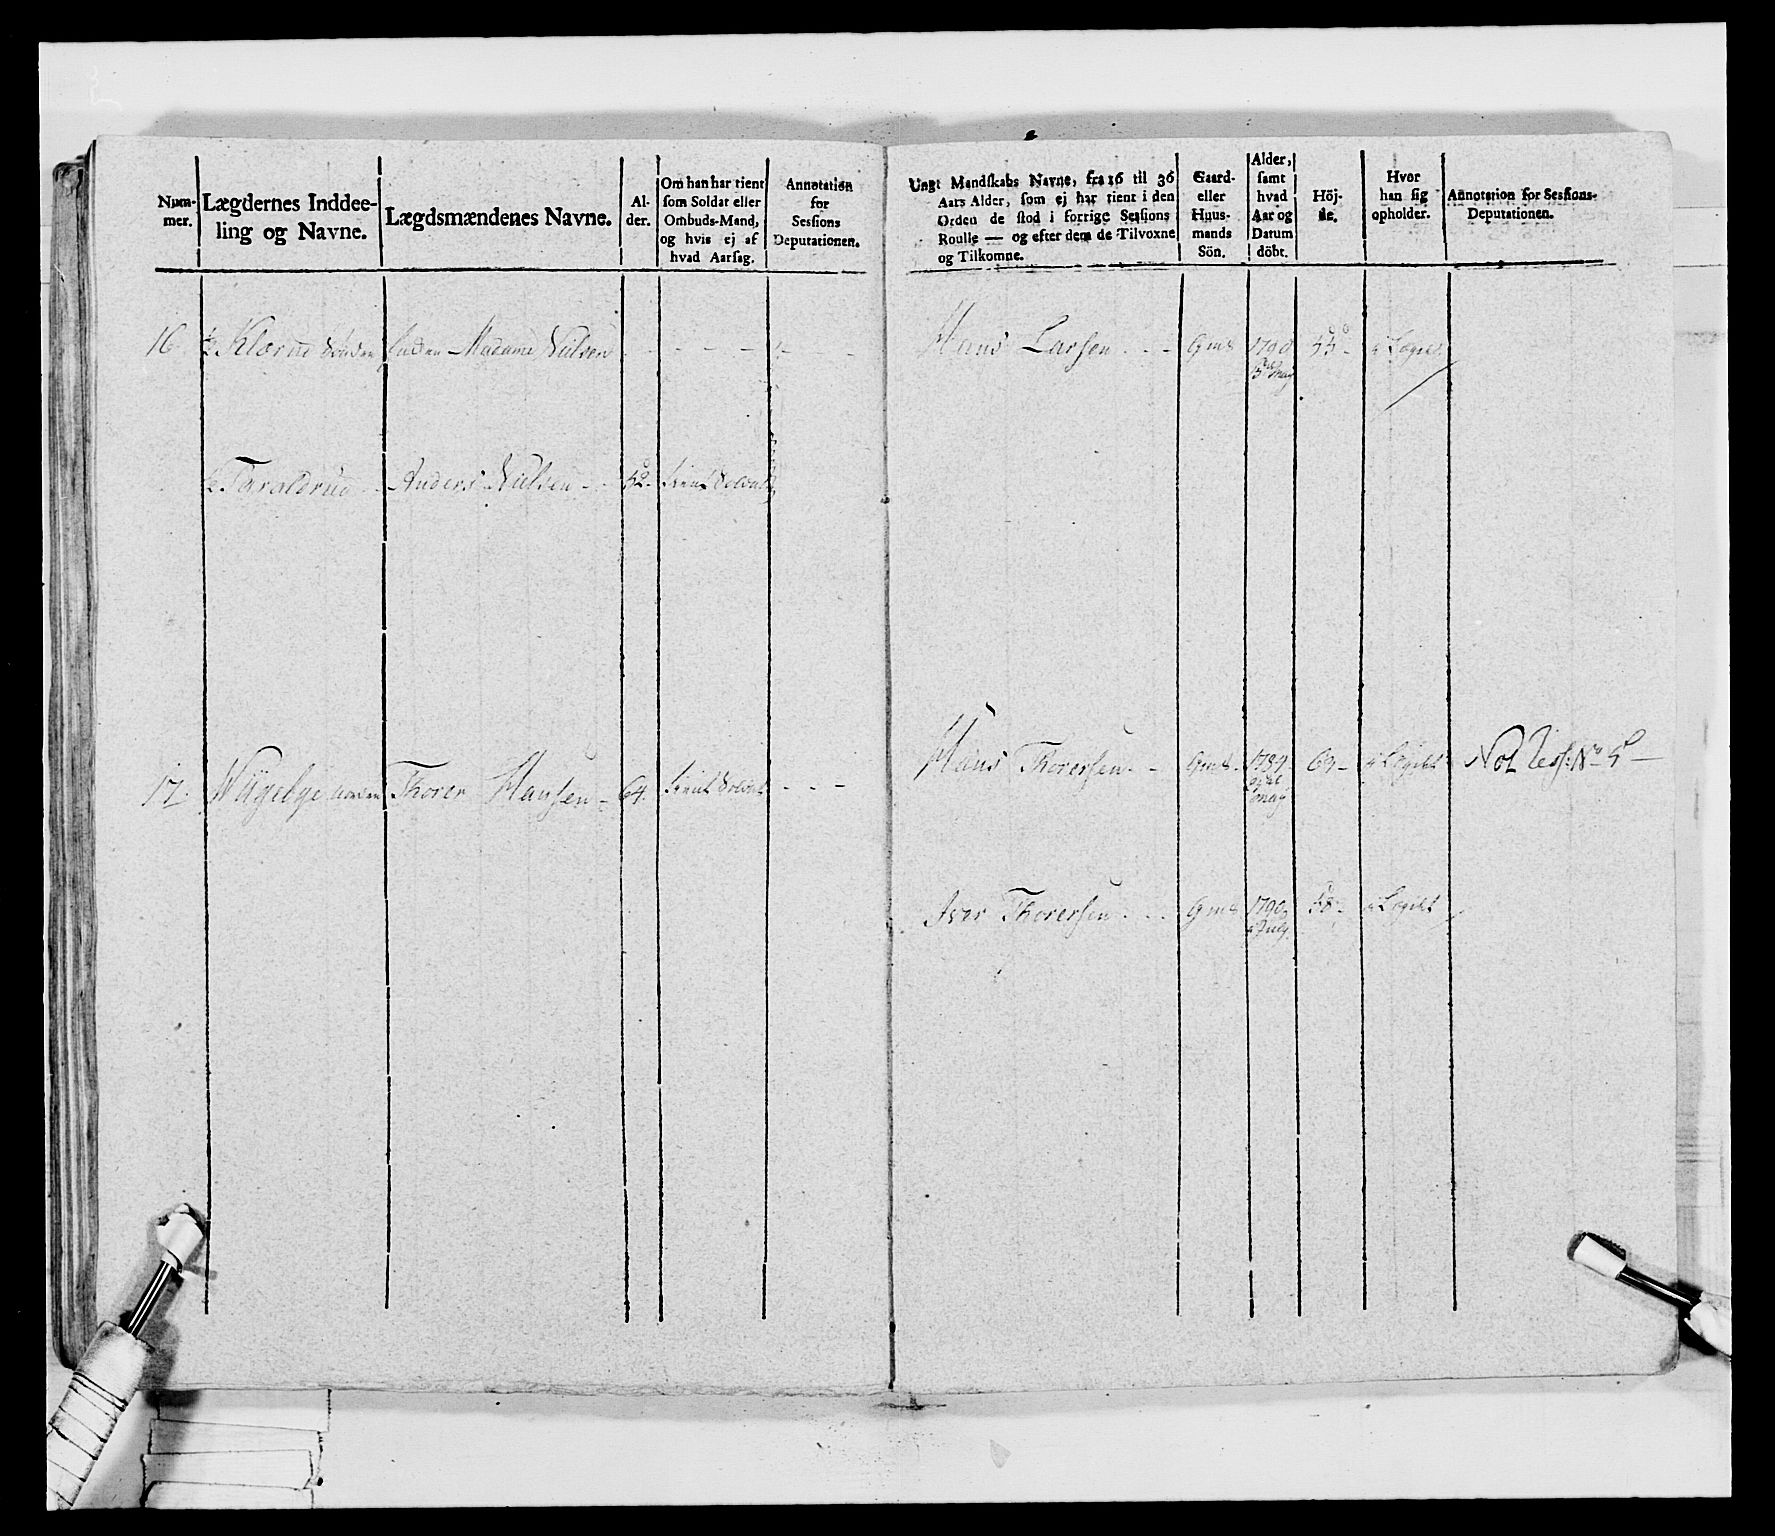 Num-
mer.
Lægdernes Inddee-
ling og Navne.
Lægdsmændenes Navne.
Al-
der.
Om han har tient
som Soldat eller
Ombuds-Mand,
og hvis ej af
hvad Aarsag.
Annotation
for
Sessions
Deputationen.
Ungt Mandskabs Navne, fra 16 til 36
Aars Alder, som ej har tient i den
Orden de stod i forrige Sessions
Roulle — og efter dem de Tilvoxne
og Tilkomne.
Gaard-
eller
Huus-
mands
Sön.
Alder,
samt
hvad
Aar og
Datum
döbt.
Höj-
de.
Hvor
han sig
opholder.
Annotation for Sessions-
Deputationen.
16 ½ Klørud Madame Nielsen - - - -
Hans Larsen - - Gms 1790 55 - i Lægdet
½ Taraldrud - Anders Nielsen - - 52 - tient Soldat
Hans Thorersen - - Gms - 63 - i Lægdet No 5
may
17. Thorer Hansen - 64. tient Soldat - - -
Iver Thorersen - - - Gms 1790 58 - i Lægdet
July